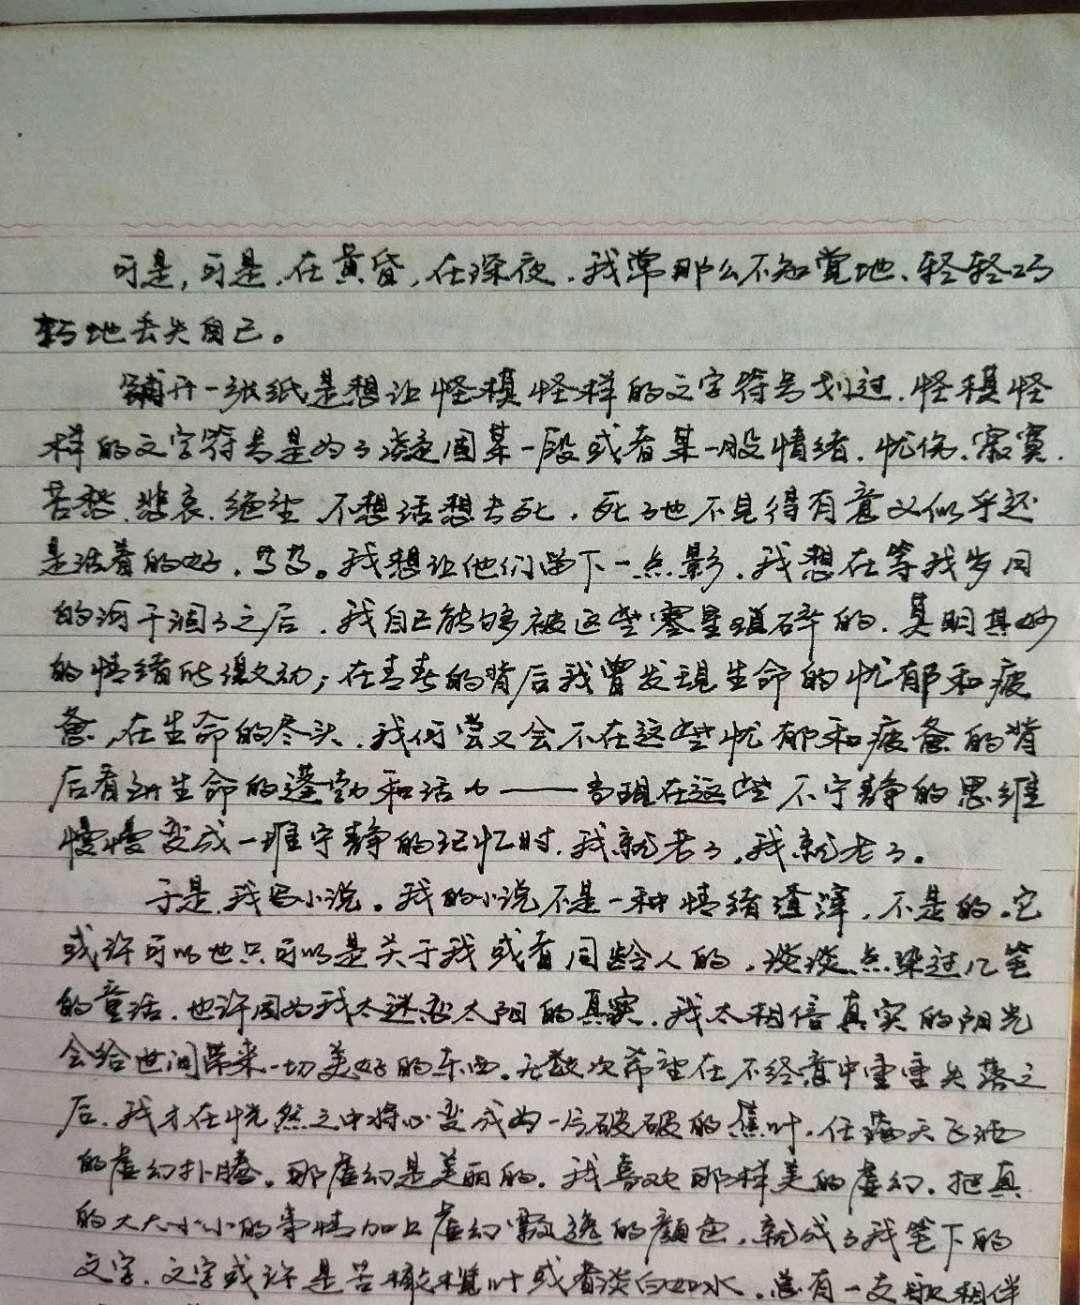 可是,可是,在黄昏,在深夜,我常那么不知觉地、轻轻巧
巧地丢失自己。
铺开一张纸是想让怪模怪样的文字符号划过,怪模怪
样的文字符号是为了凝固某一段或者某一股情绪,忧伤、寂寞、
苦愁、悲哀、绝望、不想活想去死,死了也不见得有意义似乎还
是活着的好,等等。我想让他们留下一点影,我想在等我岁月
的河干涸了之后,我自己能够被这些零星琐碎的,莫明其妙
的情绪所激动;在青春的背后我曾发现生命的忧郁和疲
惫,在生命的尽头,我何尝又会不在这些忧郁和疲惫的背
后看到生命的蓬勃和活力——当现在这些不宁静的思维
慢慢变成一堆宁静的记忆时,我就老了,我就老了。
于是,我写小说。我的小说不是一种情绪渣滓,不是的。它
或许可以也只可以是关于我或者同龄人的,淡淡点染过几笔
的童话,也许因为我太迷恋太阳的真实,我太相信真实的阳光
会给世间带来一切美好的东西。无数次希望在不经意中重重失落之
后,我才在恍然之中将心变成为一片破破的蕉叶,任满天飞洒
的虚幻扑腾。那虚幻是美丽的。我喜欢那样美的虚幻,把真
的大大小小的事情加上虚幻飘逸的颜色,就成了我笔下的
文字,文字或许是苦橄榄叶或者淡白如水,总有一支歌相伴